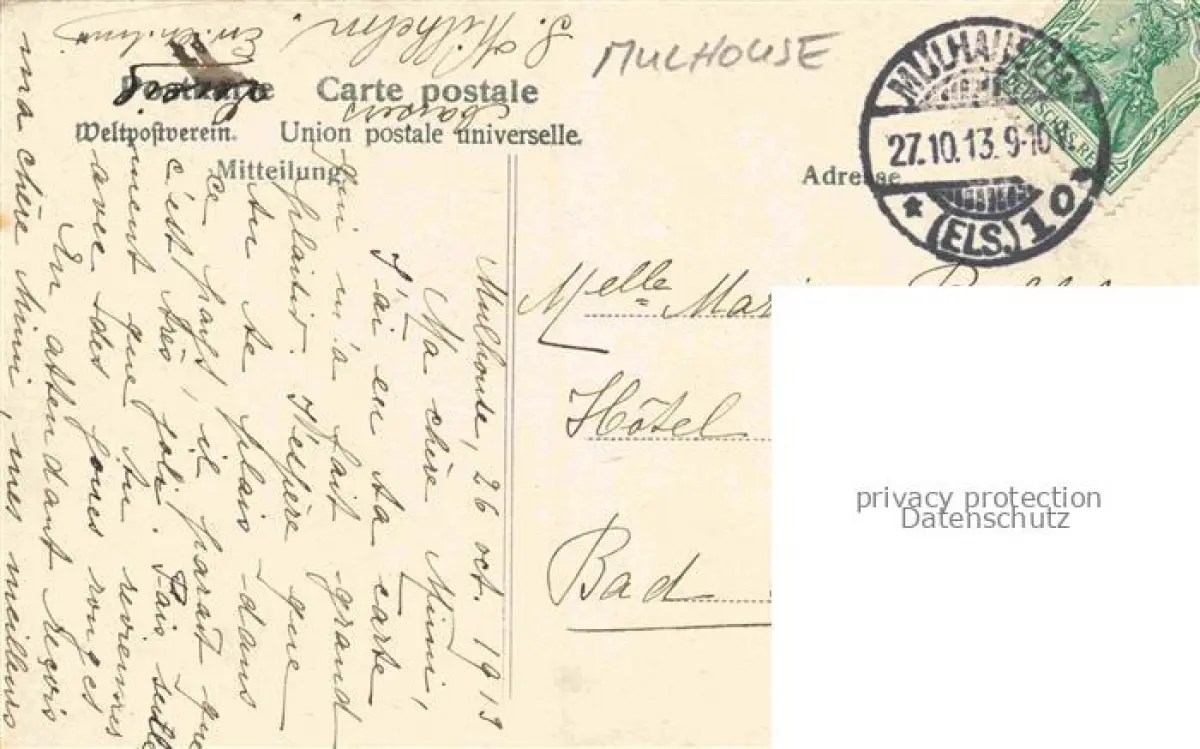 MULHOUSE
Postkarte Carte postale
Weltpostverein. Union postale universelle.
Mitteilung
Adresse
MÜLHAUSEN
27.10.13.9-10
(ELS.) 1
Mulhouse, 26 oct. 1913
Ma chère Mimi,
J'ai eu ta carte
qui m'a fait grand
plaisir. J'espère que
tu te plais dans
ce pays, il parait que
c'est très joli. Fais seulle
ment que tu reviennes
avec des joues rouges
En attendant reçois
ma chère Mimi, mes meilleurs
J. Wilhelm
Melle
Hôtel
Bad
privacy protection
Datenschutz